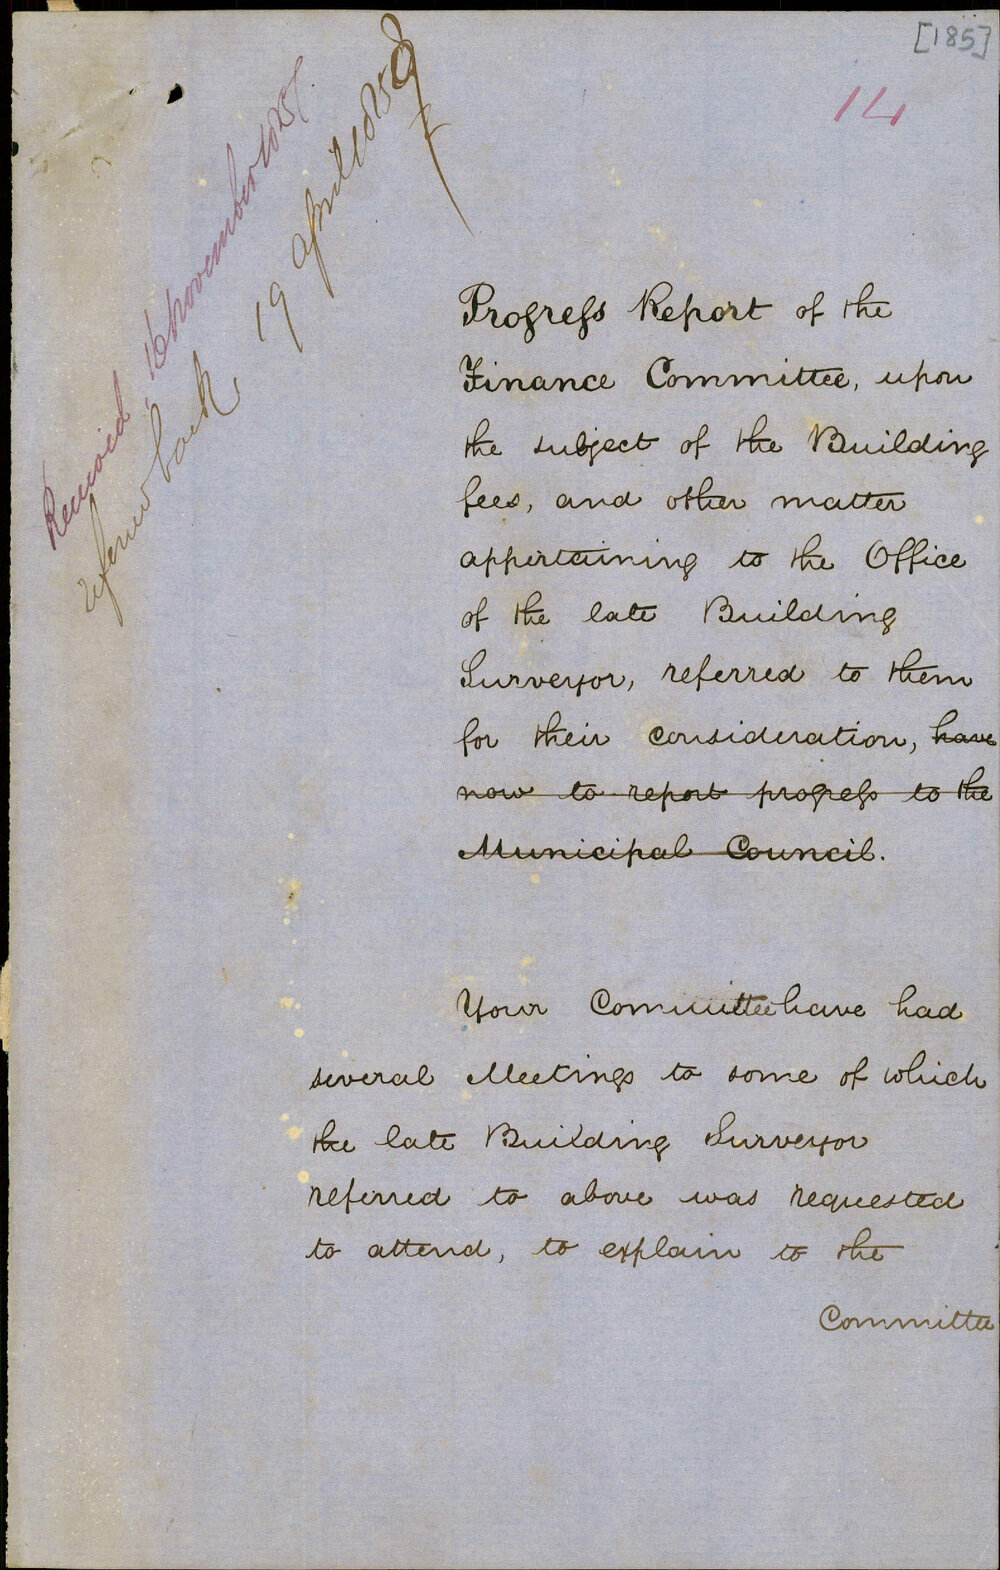 [185]
14
Received, 16 November 1857.
referred back, 19 April 1858
Progress Report of the
Finance Committee, upon
the subject of the Building
fees, and other matter
appertaining to the Office
of the late Building
Surveyor, referred to them
for their consideration, have
now to report progress to the
Municipal Council.
Your Committee have had
several Meetings to some of which
the late Building Surveyor
referred to above was requested
to attend, to explain to the
Committee